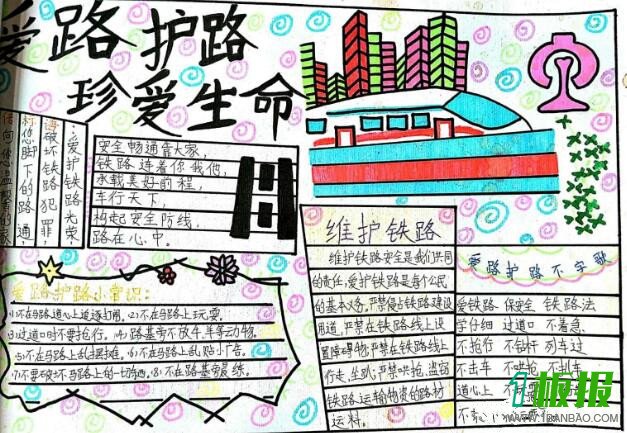 爱路护路
珍爱生命
爱护铁路光荣,
破坏铁路犯罪,
你脚下的路通
向你温馨的家
安全畅通靠大家,
铁路连着你我他,
承载美好前程,
车行天下,
构起安全防线,
路在心中。
爱路护路小常识:
1)不在马路道心上追逐打闹。2)不在马路上玩耍。
3)过道口时不要抢行。(4)路基旁不放牛、羊等动物。
5)不在马路上乱摆摊。6)不在马路上乱贴小广告。
7)不要破坏马路上的一切 8)不在路基旁
维护铁路
维护铁路安全是我们共同
的责任,爱护铁路是每个公民
的基本义务,严禁侵占铁路建设
用道,严禁在铁路线上设
置障碍物,严禁在铁路线上
行走、坐卧,严禁哄抢、盗窃
铁路运输物资的路材
运料。
爱路护路不字歌
爱铁路 保安全 铁路法
学仔细 过道口 不着急
不抢行 不钻杆 列车过
不击车 不哄抢 不扒车
道心上
1板报
WWW.1BANBAO.COM